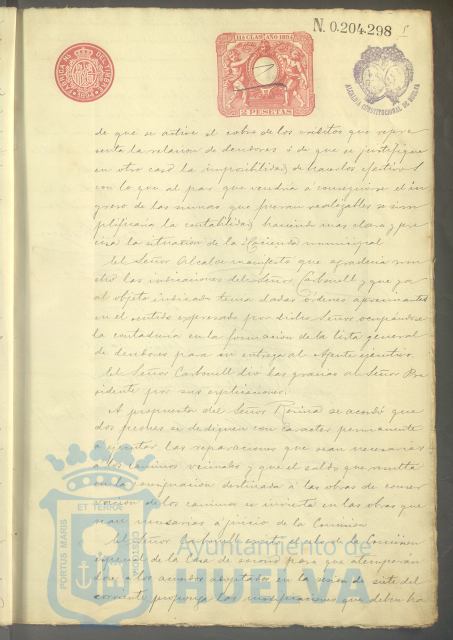 N. 0.204.298
11ª CLASE AÑO 1894
2 PESETAS
ALCALDIA CONSTITUCIONAL DE HUELVA
de que se active el cobro de los créditos que repre
senta la relacion de deudores ó de que se justifique
en otro caso la imposibilidad de hacerlos efectivos
con lo que al par que vendria á conseguirse el in
greso de las sumas que fueran realizables se sim
plificaria la contabilidad haciendo mas clara y pre
cisa la situacion de la Hacienda municipal
El Señor Alcalde manifestó que agradecia mu
cho las indicaciones del Señor Carbonell y que ya
al objeto indicado tenia dadas órdenes apremiantes
en el sentido expresado por dicho Señor ocupándose
la contaduria en la formacion de la lista general
de deudores para su entrega al Agente ejecutivo.
El Señor Carbonell dió las gracias al Señor Pre
sidente por sus esplicaciones.
A propuesta del Señor se acordó que
dos peones se dediquen con caracter permanente
a ejecutar las reparaciones que sean necesarias
a los caminos vecinales y que el saldo que resulta
en la consignacion destinada á las obras de conser
vacion de los caminos se invierta en las obras que
sean necesarias á juicio de la Comision
El Señor Carbonell escitó el celo de la Comision
especial de la Casa de socorro para que atemperán
dose á los acuerdos adoptados en la sesion de siete del
corriente proponga las modificaciones que deben ha
PORTUS MARIS
ET TERRAE
CUSTODIA
Ayuntamiento de
HUELVA